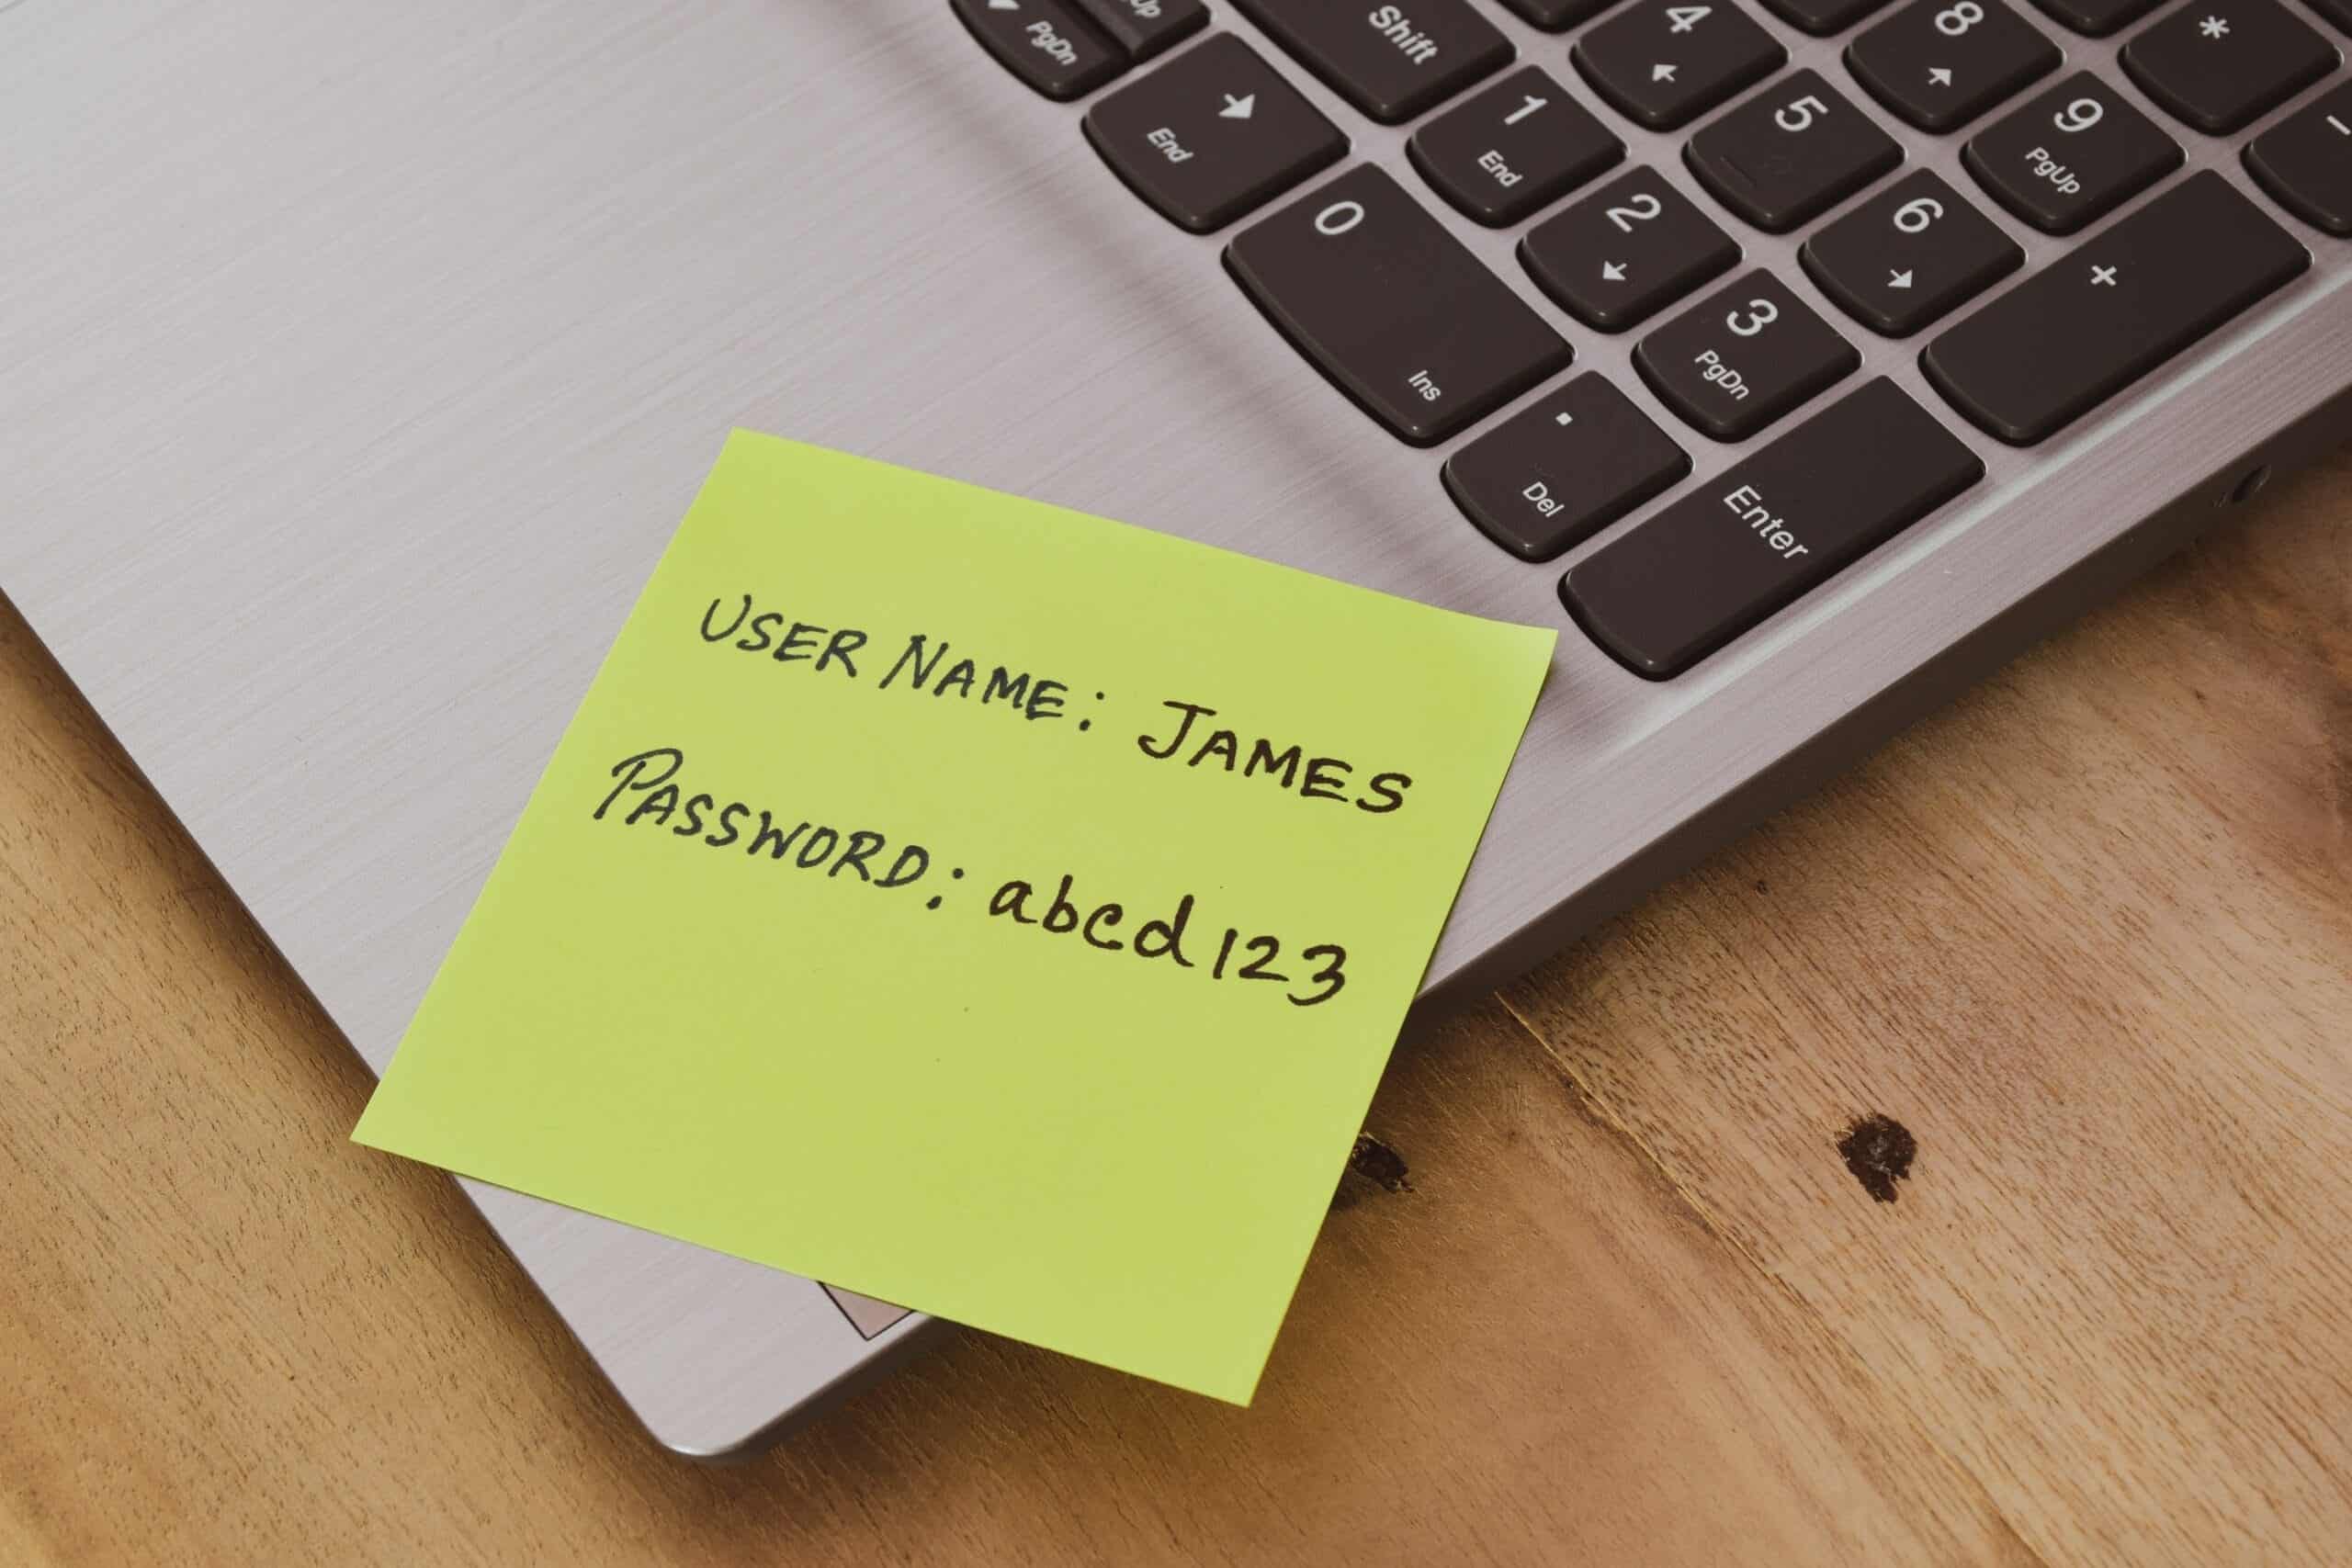 Up
PgDn
Shift
4
8
*
End
1
End
5
9
PgUp
-
0
Ins
2
6
+
3
PgDn
.
Del
Enter
USER NAME: JAMES
PASSWORD: abcd123